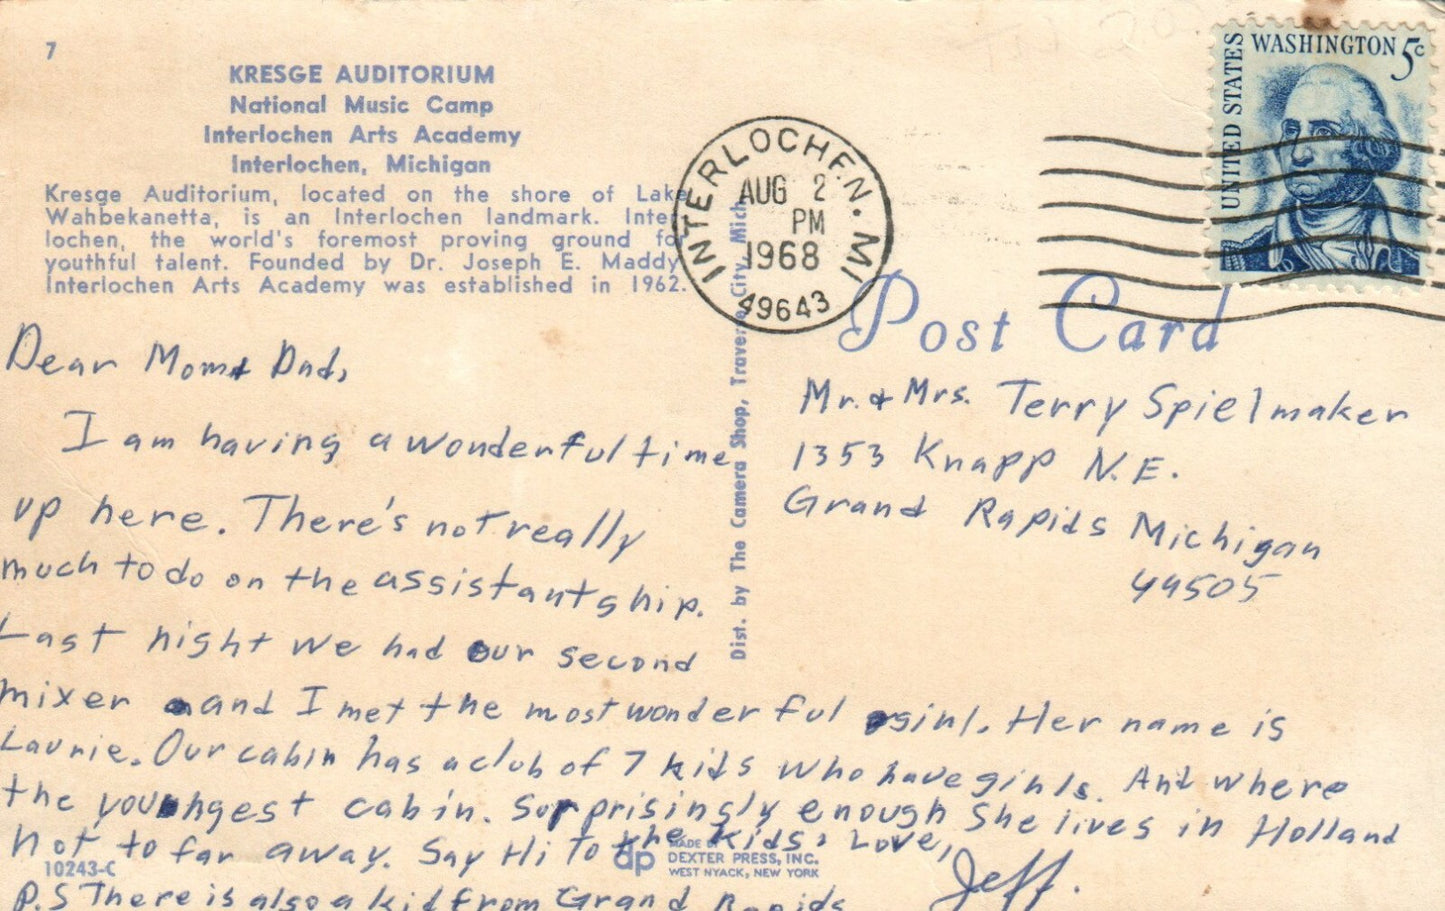 7
KRESGE AUDITORIUM
National Music Camp
Interlochen Arts Academy
Interlochen, Michigan
Kresge Auditorium, located on the shore of Lake
Wahbekanetta, is an Interlochen landmark. Inter
lochen, the world's foremost proving ground for
youthful talent. Founded by Dr. Joseph E. Maddy
Interlochen Arts Academy was established in 1962.
Dear Mom & Dad,
I am having a wonderful time
up here. There's not really
much to do on the assistantship.
Last night we had our second
mixer and I met the most wonderful girl. Her name is
Laurie. Our cabin has a club of 7 kids who have girls. And where
the youngest cabin. Surprisingly enough she lives in Holland
not to far away. Say Hi to the kids. Love,
Jeff.
P.S There is also a kid from Grand Rapids
10243-C
dp
MADE BY
DEXTER PRESS, INC.
WEST NYACK, NEW YORK
Dist. by The Camera Shop, Traverse City, Mich.
INTERLOCHEN. MI
AUG 2
PM
1968
49643
UNITED STATES
WASHINGTON 5c
Post Card
Mr. & Mrs. Terry Spielmaker
1353 Knapp N.E.
Grand Rapids Michigan
49505